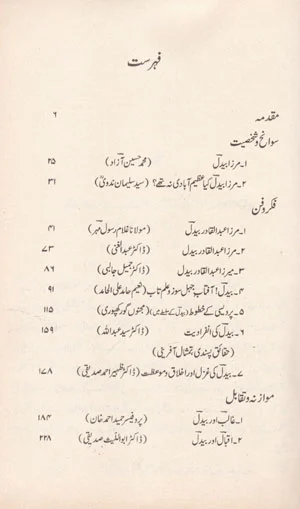 فہرست
مقدمہ ۶
سوانح و شخصیت
۱۔ مرزا بیدلؔ (محمد حسین آزاد) ۲۵
۲۔ مرزا بیدلؔ کیا عظیم آبادی نہ تھے؟ (سید سلیمان ندویؒ) ۳۱
فکر و فن
۱۔ مرزا عبدالقادر بیدلؔ (مولانا غلام رسول مہر) ۴۱
۲۔ مرزا عبدالقادر بیدلؔ (ڈاکٹر عبدالغنی) ۷۳
۳۔ میرزا عبدالقادر بیدلؔ (ڈاکٹر جمیل جالبی) ۸۶
۴۔ بیدلؔ! آفتابِ جہل سوز و علم تاب (نعیم حامد علی الحامد) ۹۱
۵۔ پردیسی کے خطوط (بیدلؔ کے سلسلے میں) (مجنوں گورکھپوری) ۱۱۵
۶۔ بیدلؔ کی انفرادیت (ڈاکٹر سید عبداللہ) ۱۵۹
(حقائق پسندی، تمثال آفرینی)
۷۔ بیدلؔ کی غزل اور اخلاق و موعظت (ڈاکٹر ظہیر احمد صدیقی) ۱۷۸
موازنہ و تقابل
۱۔ غالبؔ اور بیدلؔ (پروفیسر حمید احمد خان) ۱۸۴
۲۔ اقبالؔ اور بیدلؔ (ڈاکٹر ابواللیث صدیقی) ۲۲۸